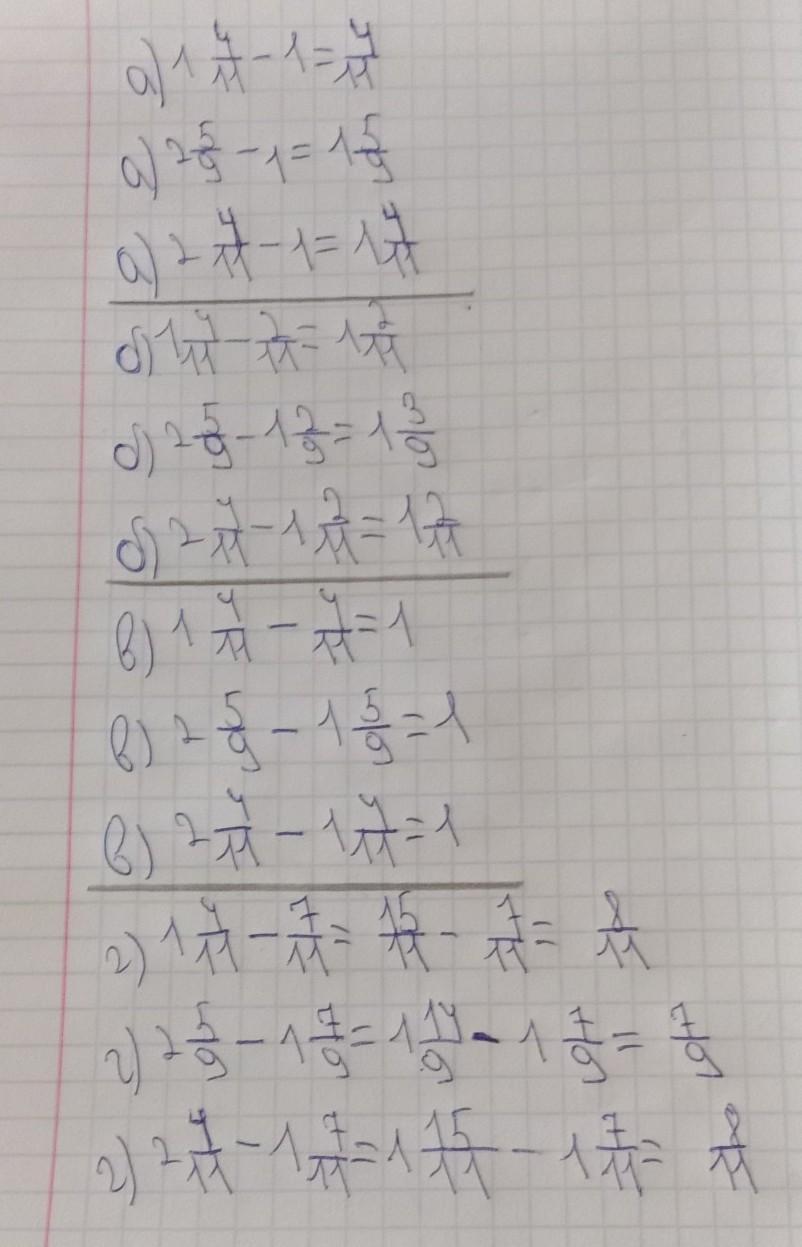 а) 1 4/11 - 1 = 4/11
а) 2 5/9 - 1 = 1 5/9
а) 2 4/11 - 1 = 1 4/11
б) 1 4/11 - 2/11 = 1 2/11
б) 2 5/9 - 1 2/9 = 1 3/9
б) 2 4/11 - 1 2/11 = 1 2/11
в) 1 4/11 - 4/11 = 1
в) 2 5/9 - 1 5/9 = 1
в) 2 4/11 - 1 4/11 = 1
г) 1 4/11 - 7/11 = 15/11 - 7/11 = 8/11
г) 2 5/9 - 1 7/9 = 1 14/9 - 1 7/9 = 7/9
г) 2 4/11 - 1 7/11 = 1 15/11 - 1 7/11 = 8/11